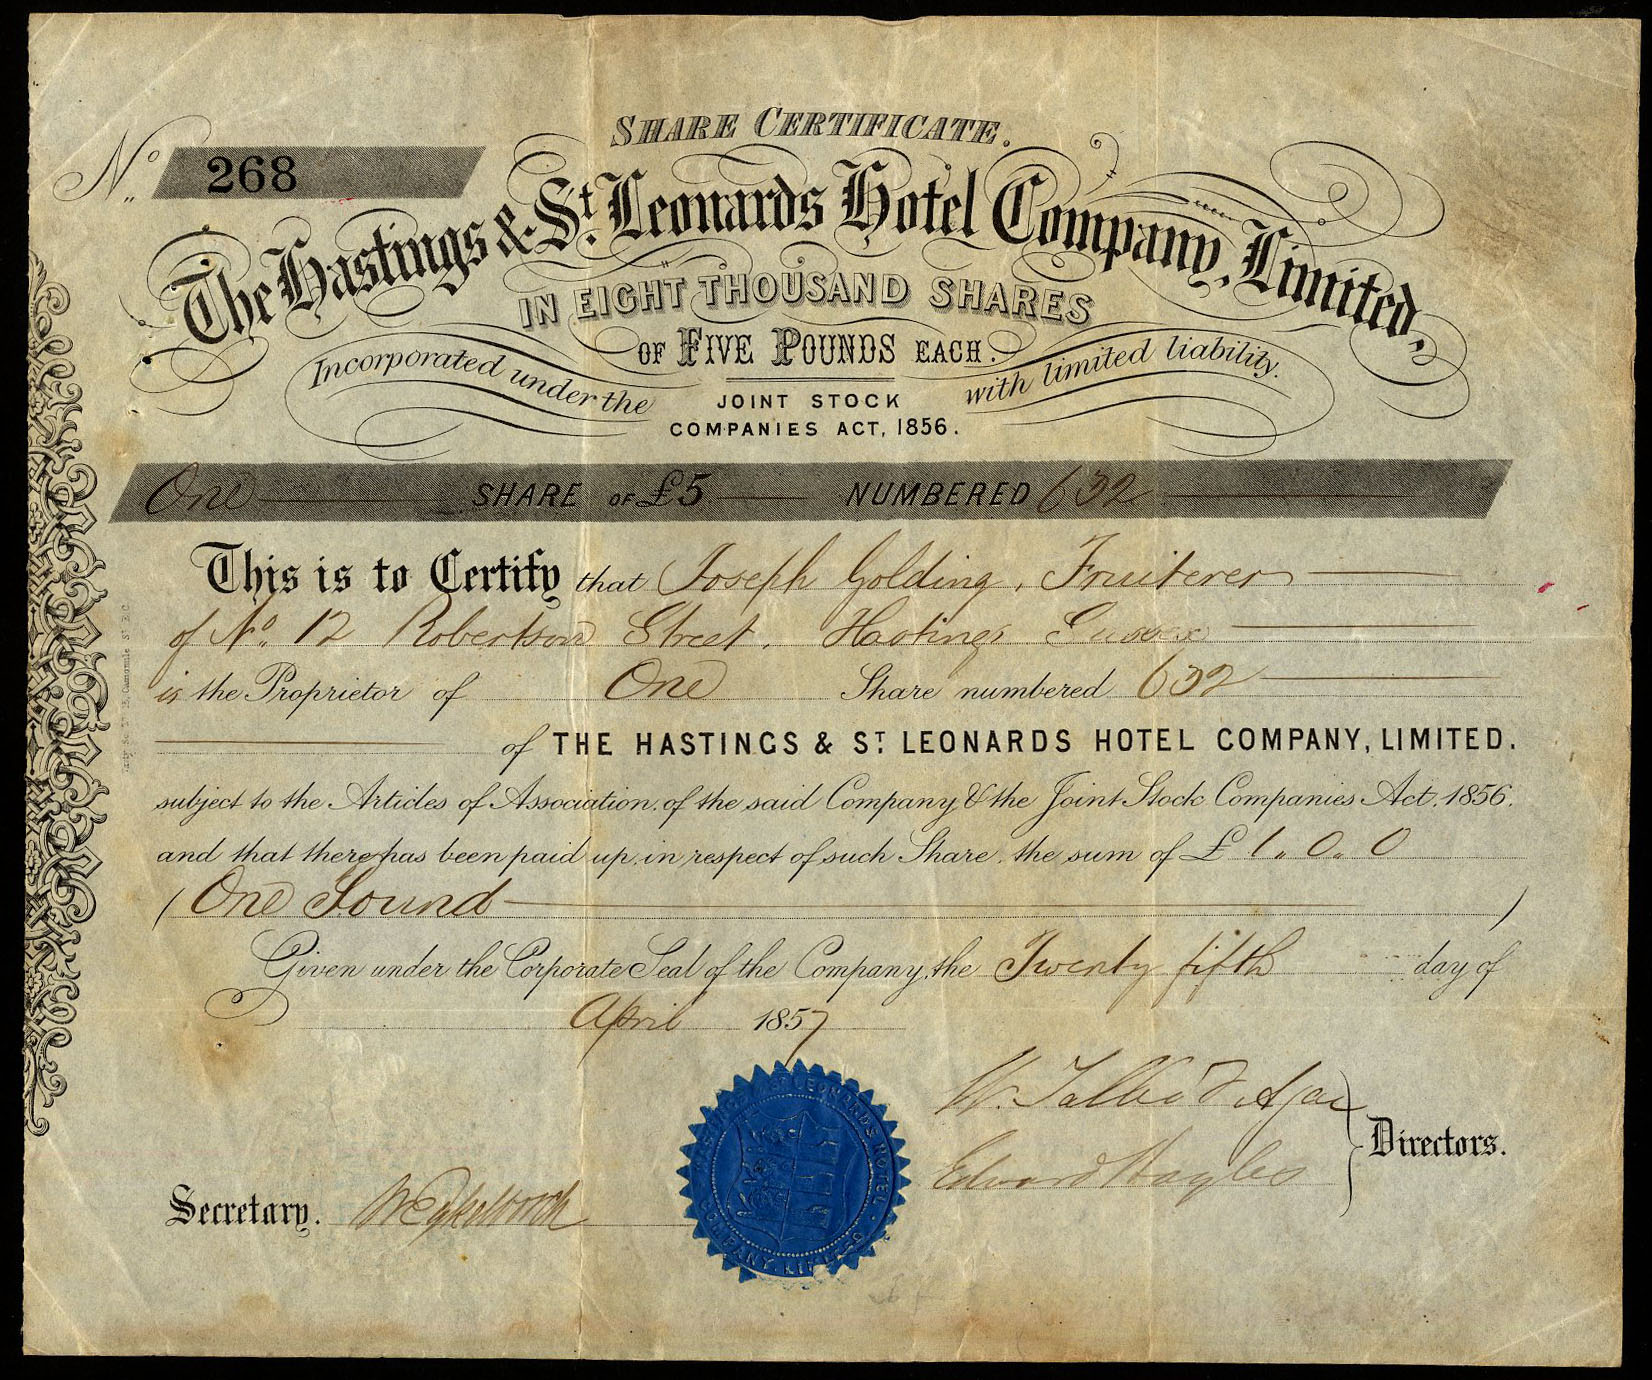 SHARE CERTIFICATE.
No. 268
The Hastings & St. Leonards Hotel Company, Limited,
IN EIGHT THOUSAND SHARES
OF FIVE POUNDS EACH.
Incorporated under the JOINT STOCK COMPANIES ACT, 1856. with limited liability.
One SHARE OF £5 NUMBERED 632
This is to Certify that Joseph Golding, Fruiterer
of No. 12 Robertson Street, Hastings Sussex
is the Proprietor of One Share numbered 632
of THE HASTINGS & ST. LEONARDS HOTEL COMPANY, LIMITED.
subject to the Articles of Association, of the said Company & the Joint Stock Companies Act, 1856.
and that there has been paid up, in respect of such Share, the sum of £ 1.0.0
(One Pound)
Given under the Corporate Seal of the Company, the Twenty fifth day of
April 1857
W. Talbot
Edward Hayles
Directors.
Secretary.
ST LEONARDS HOTEL COMPANY LIMITED